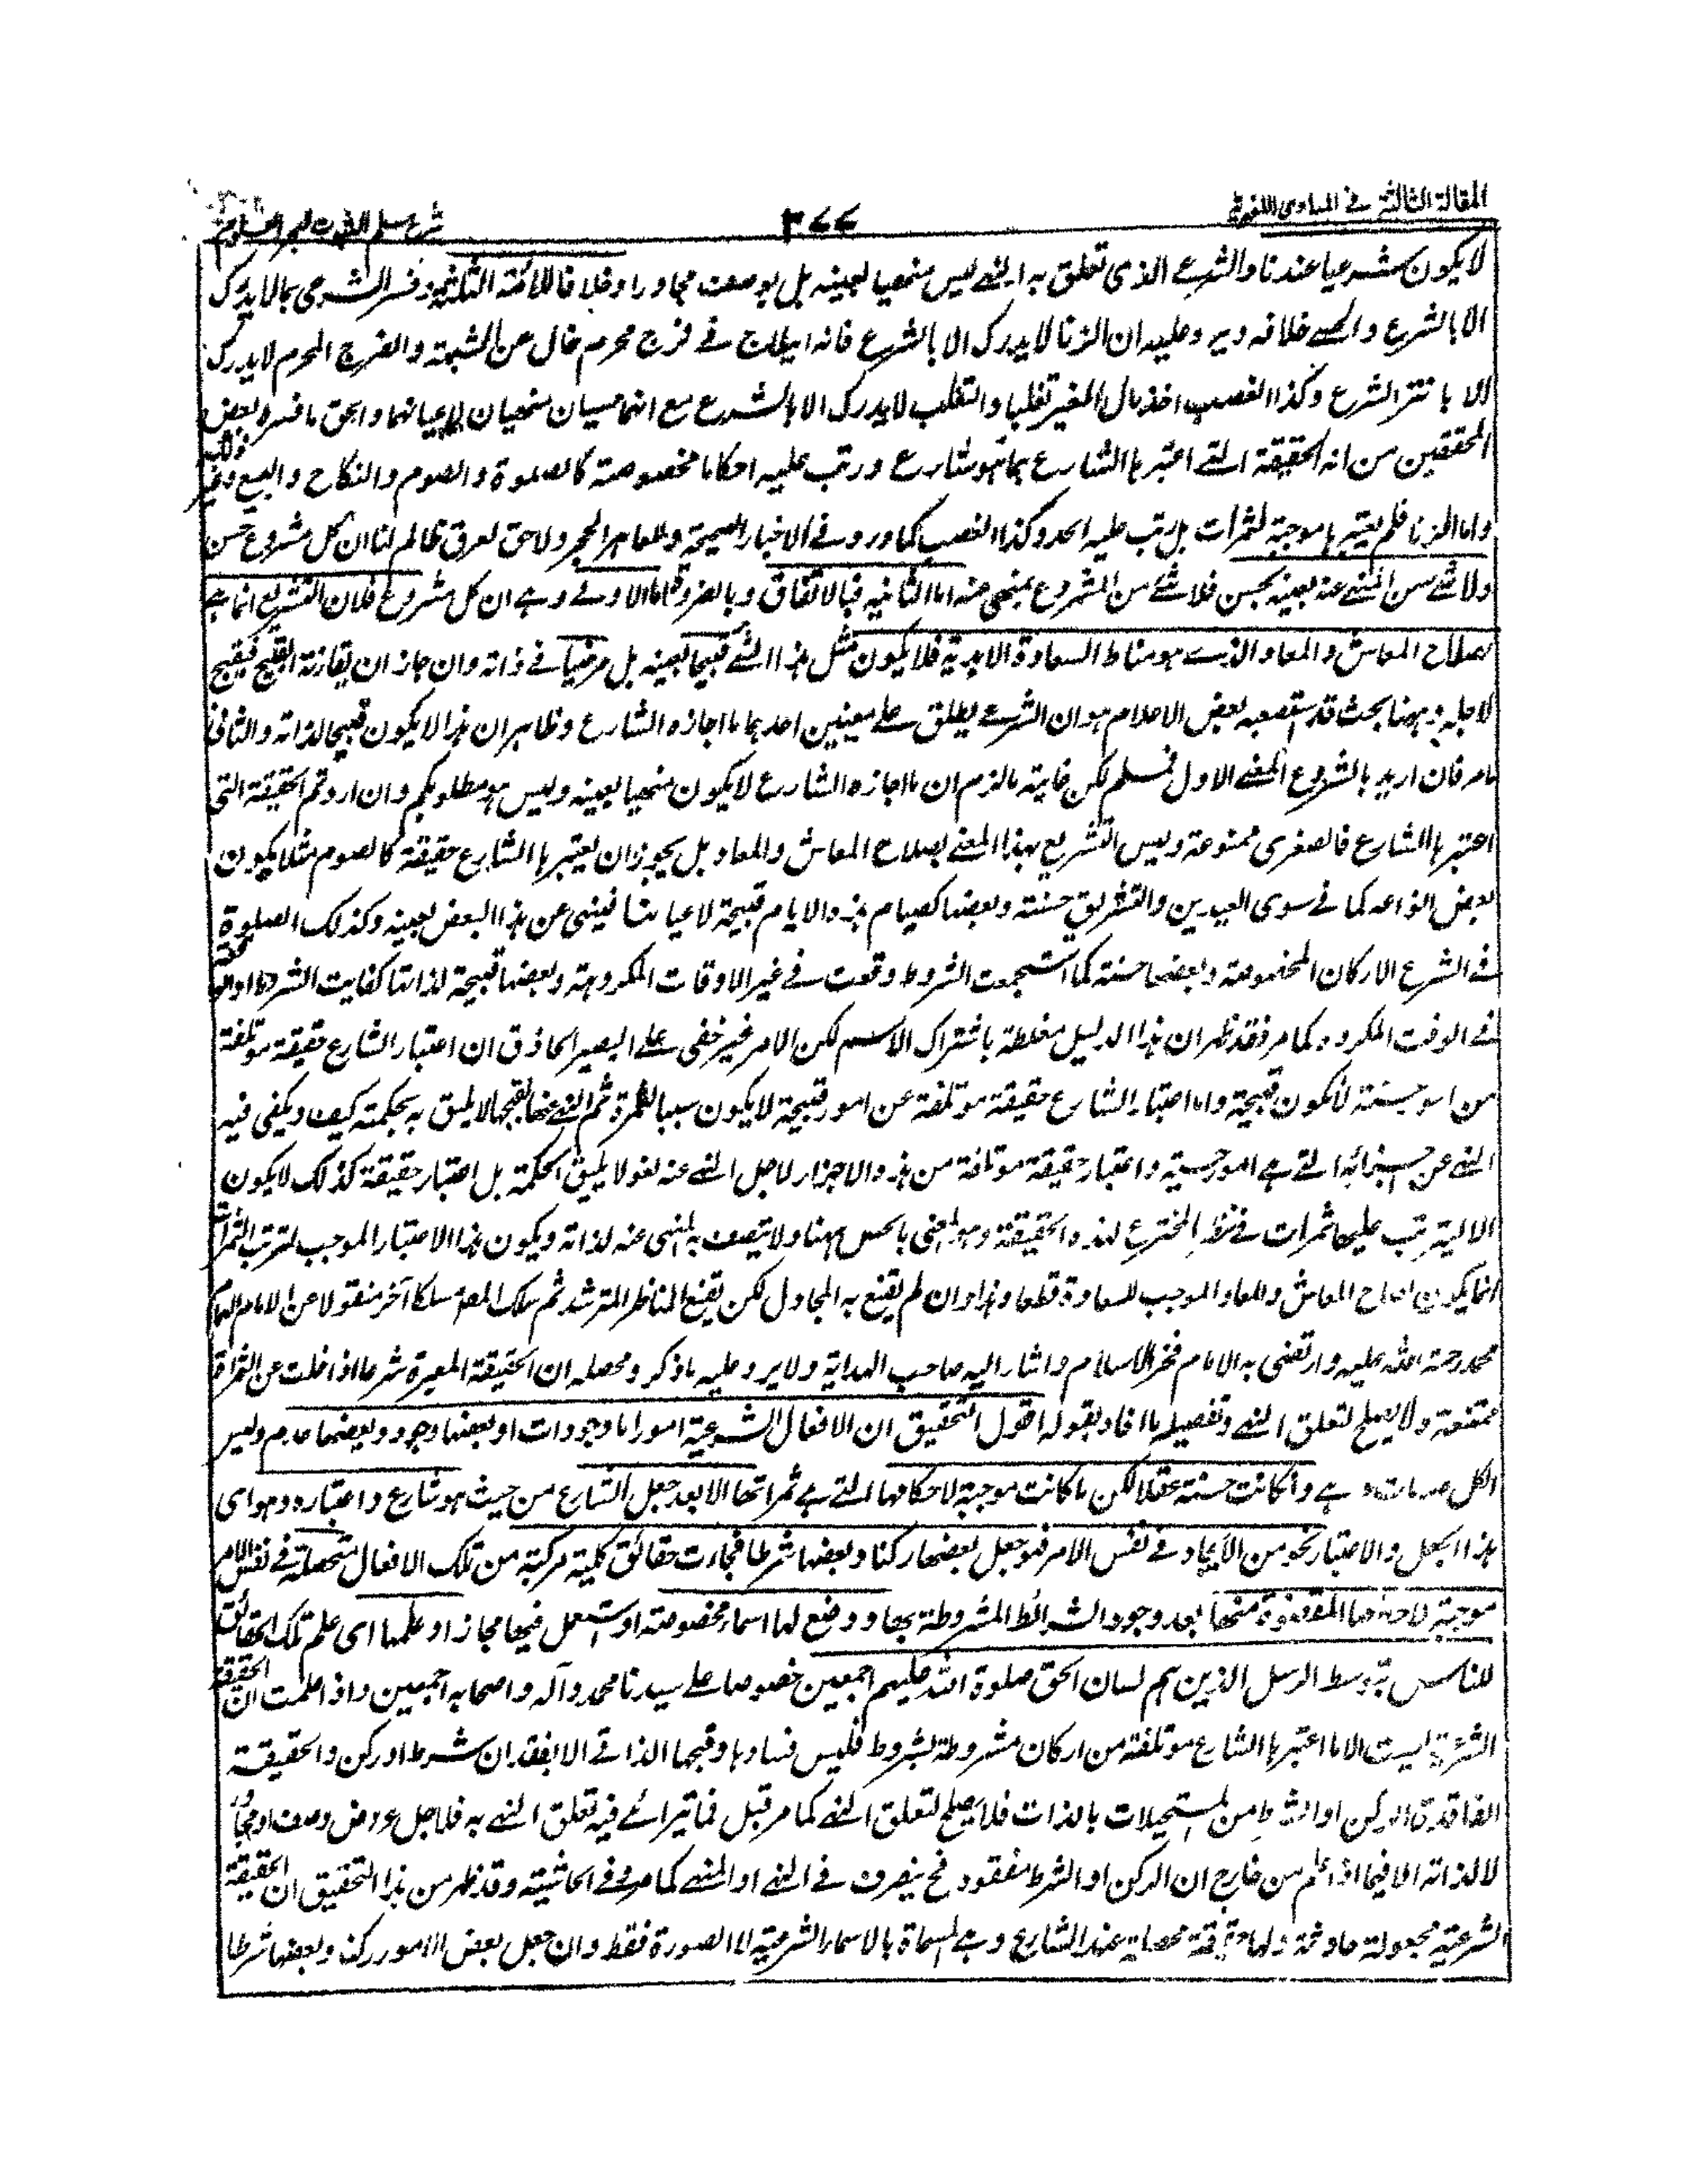 المقالة الثالثة في المبادي اللغوية
٣٧٧
شرح مسلم الثبوت لبحر العلوم
لا يكون مشروعيا عندنا والشرعي الذي تعلق به النهي ليس منهيا لعينه بل لوصف مجاورا وخلافا للائمة الثلثة وفسر الشرعي بما لا يدرك
الا بالشرع والحسي خلافه ويرد عليه ان الزنا لا يدرك الا بالشرع فانه ايلاج في فرج محرم خال عن الشبهة والفرج المحرم لا يدرك
الا بالشرع وكذا الغصب اخذ مال الغير تغلبا والتغلب لا يدرك الا بالشرع مع انهما حسيان منهيان لاعيانهما والحق ما فسره بعض
المحققين من انه الحقيقة التي اعتبرها الشارع بما هو شارع ورتب عليه احكاما مخصوصة كالصلوة والصوم والنكاح والبيع وغير ذلك
واما الزنا فلم يعتبرها موجبة لثمرات بل رتب عليه الحد وكذا الغصب كما ورد في الاخبار الصحيحة وللعاهر الحجر ولا حق لعرق ظالم لنا ان كل مشروع حسن
ولا شئ من المنهي عنه بعينه بحسن فلا شئ من المشروع بمنهي عنه اما الثانية فبالاتفاق وبالضرورة واما الاولى وهي ان كل مشروع فلان التشريع انما هي
لصلاح المعاش والمعاد الذي هو مناط السعادة الابدية فلا يكون مثل هذا الشئ قبيحا لعينه بل مرضيا في ذاته وان جاز ان يقارنه القبيح فيقبح
لاجله وههنا بحث قد استصعبه بعض الاعلام هو ان الشرعي يطلق على معنيين احدهما ما اجازه الشارع وظاهر ان هذا لا يكون قبيحا لذاته والثاني
ما مر فان اريد بالمشروع المعنى الاول فمسلم لكن غاية ما لزم ان ما اجازه الشارع لا يكون منهيا لعينه وليس هو مطلوبكم وان اردتم الحقيقة التي
اعتبرها الشارع فالصغرى ممنوعة وليس التشريع بهذا المعنى لصلاح المعاش والمعاد بل يجوز ان يعتبرها الشارع حقيقة كالصوم مثلا يكون
بعض انواعه كما في سوى العيدين والتشريق حسنة وبعضها كصيام هذه الايام قبيحة لاعيانها فينهى عن هذا البعض لعينه وكذلك الصلوة
في الشرع الاركان المخصوصة وبعضها حسنة كما استجمعت الشروط وقعت في غير الاوقات المكروهة وبعضها قبيحة لذاتها كفايت الشرط او الواقعة
في الوقت المكروه كما مر فقد ظهر ان هذا الدليل مغلطة باشتراك الاسم لكن الامر غير خفي على البصير الحاذق ان اعتبار الشارع حقيقة موتلفة
من امور حسنة لا يكون قبيحة واما اعتبار الشارع حقيقة موتلفة عن امور قبيحة لا يكون سببا لثمرة ثم النهي عنها لقبحها لا يليق به بحكمته كيف ويكفي فيه
النهي عن اجزائه التي هي امور حسية واعتبار حقيقة موتلفة من هذه الاجزاء لاجل النهي عنه لغو لا يليق الحكمة بل اعتبار حقيقة كذلك لا يكون
الا ليترتب عليها ثمرات في نظر المخترع لهذه الحقيقة وهو المعني بالحسن ههنا ولا يتصف به المنهي عنه لذاته ويكون هذا الاعتبار الموجب لترتب الثمرات
انما يكون لصلاح المعاش والمعاد الموجب للسعادة قطعا وهذا وان لم يقنع به المجادل لكن يقنع المناظر المسترشد ثم سلك المص مسلكا آخر منقولا عن الامام الهمام
محمد رحمة الله عليه وارتضى به الامام فخر الاسلام واشار اليه صاحب الهداية ولا يرد عليه ما ذكر ومحصله ان الحقيقة المعبرة شرعا اذا خلت عن الثمرة
ممتنعة ولا يصلح لتعلق النهي وتفصيله ما افاد بقوله اقول التحقيق ان الافعال الشرعية امور اما وجودات او بعضها وجود وبعضها عدم وليس
الكل عدمات وهي وان كانت حسنة عقلا لكن ما كانت موجبة لاحكامها التي هي ثمراتها الا بعد جعل الشارع من حيث هو شارع واعتباره وهو اى
هذا الجعل والاعتبار نحو من الايجاد في نفس الامر فهو جعل بعضها ركنا وبعضها شرطا فجاءت حقائق كلية مركبة من تلك الافعال متحصلة في نفس الامر
موجبة لاحكامها المقصودة منها بعد وجود الشرائط المشروطة بها ووضع لها اسماء مخصوصة او استعمل فيها مجازا وعلمها اى علم تلك الحقائق
للناس بتوسط الرسل الذين هم لسان الحق صلوة الله عليهم اجمعين خصوصا على سيدنا محمد وآله واصحابه اجمعين واذا علمت ان الحقيقة
الشرعية ليست الا ما اعتبرها الشارع موتلفة من اركان مشروطة بشروط فليس فسادها وقبحها الذاتي الا لفقدان شرط او ركن والحقيقة
الفاقدة الركن او الشرط من المستحيلات بالذات فلا يصلح لتعلق النهي كما مر قبل فما تيراءى فيه تعلق النهي به فلاجل عروض وصف او مجاور
لا لذاته الا فيما اذا علم من خارج ان الركن او الشرط مفقود فح يتصرف في النهي او المنهي كما مر في الحاشية وقد ظهر من هذا التحقيق ان الحقيقة
الشرعية مجعولة حادثة ولها حقيقة محصلة عند الشارع وهي المسماة بالاسماء الشرعية لا الصورة فقط وان جعل بعض الامور ركنا وبعضها شرطا